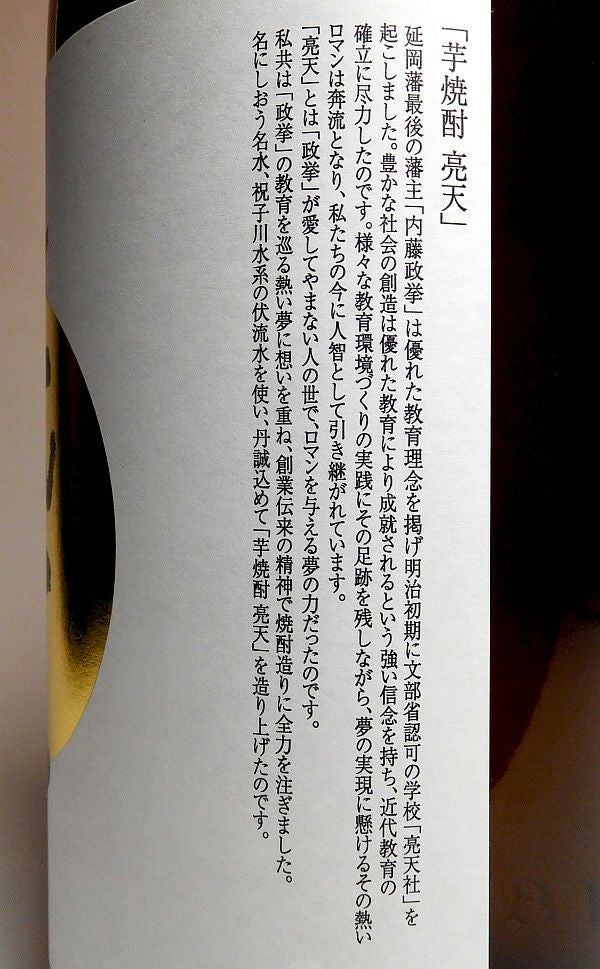 「芋焼酎 亮天」
延岡藩最後の藩主「内藤政挙」は優れた教育理念を掲げ明治初期に文部省認可の学校「亮天社」を
起こしました。豊かな社会の創造は優れた教育により成就されるという強い信念を持ち、近代教育の
確立に尽力したのです。様々な教育環境づくりの実践にその足跡を残しながら、夢の実現に懸けるその熱い
ロマンは奔流となり、私たちの今に人智として引き継がれています。
「亮天」とは「政挙」が愛してやまない人の世で、ロマンを与える夢の力だったのです。
私共は「政挙」の教育を巡る熱い夢に想いを重ね、創業伝来の精神で焼酎造りに全力を注ぎました。
名にしおう名水、祝子川水系の伏流水を使い、丹誠込めて「芋焼酎 亮天」を造り上げたのです。